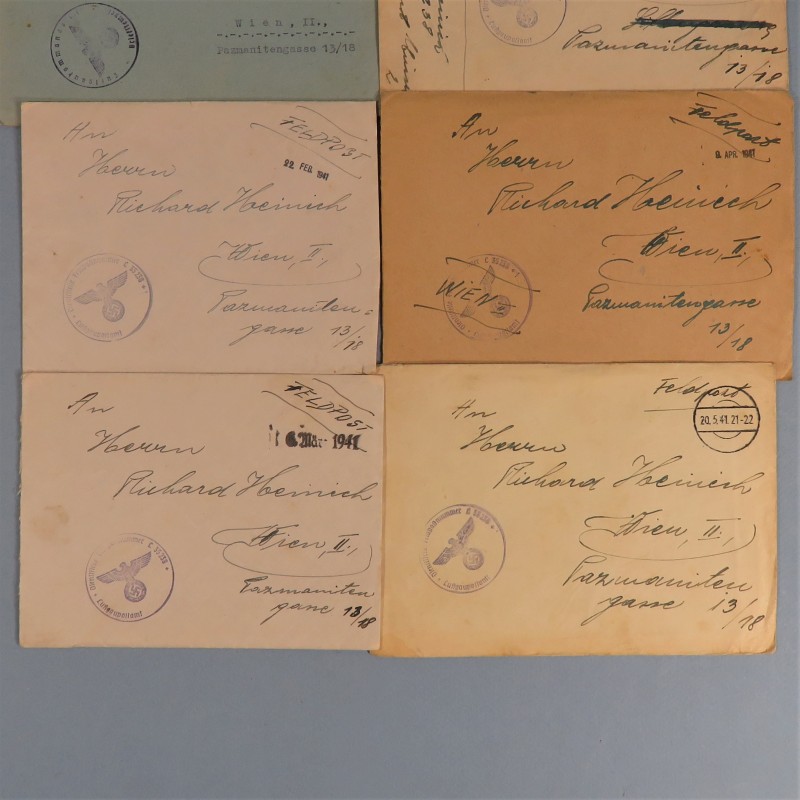 Wien, II.,
Pazmanitengasse 13/18
Pazmanitengasse
13/18
FELDPOST
22. FEB. 1941
An
Herrn
Richard Heinich
Wien, II.,
Pazmaniten=
gasse 13/18
Feldpost
9. APR. 1941
An
Herrn
Richard Heinich
Wien, II.,
WIEN II
Pazmanitengasse
13/18
FELDPOST
Mär 1941
An
Herrn
Richard Heinich
Wien, II.,
Pazmaniten
gasse 13/18
Luftgaupostamt
Feldpost
20.5.41.21-22
An
Herrn
Richard Heinich
Wien, II.,
Pazmaniten
gasse 13/18
Luftgaupostamt